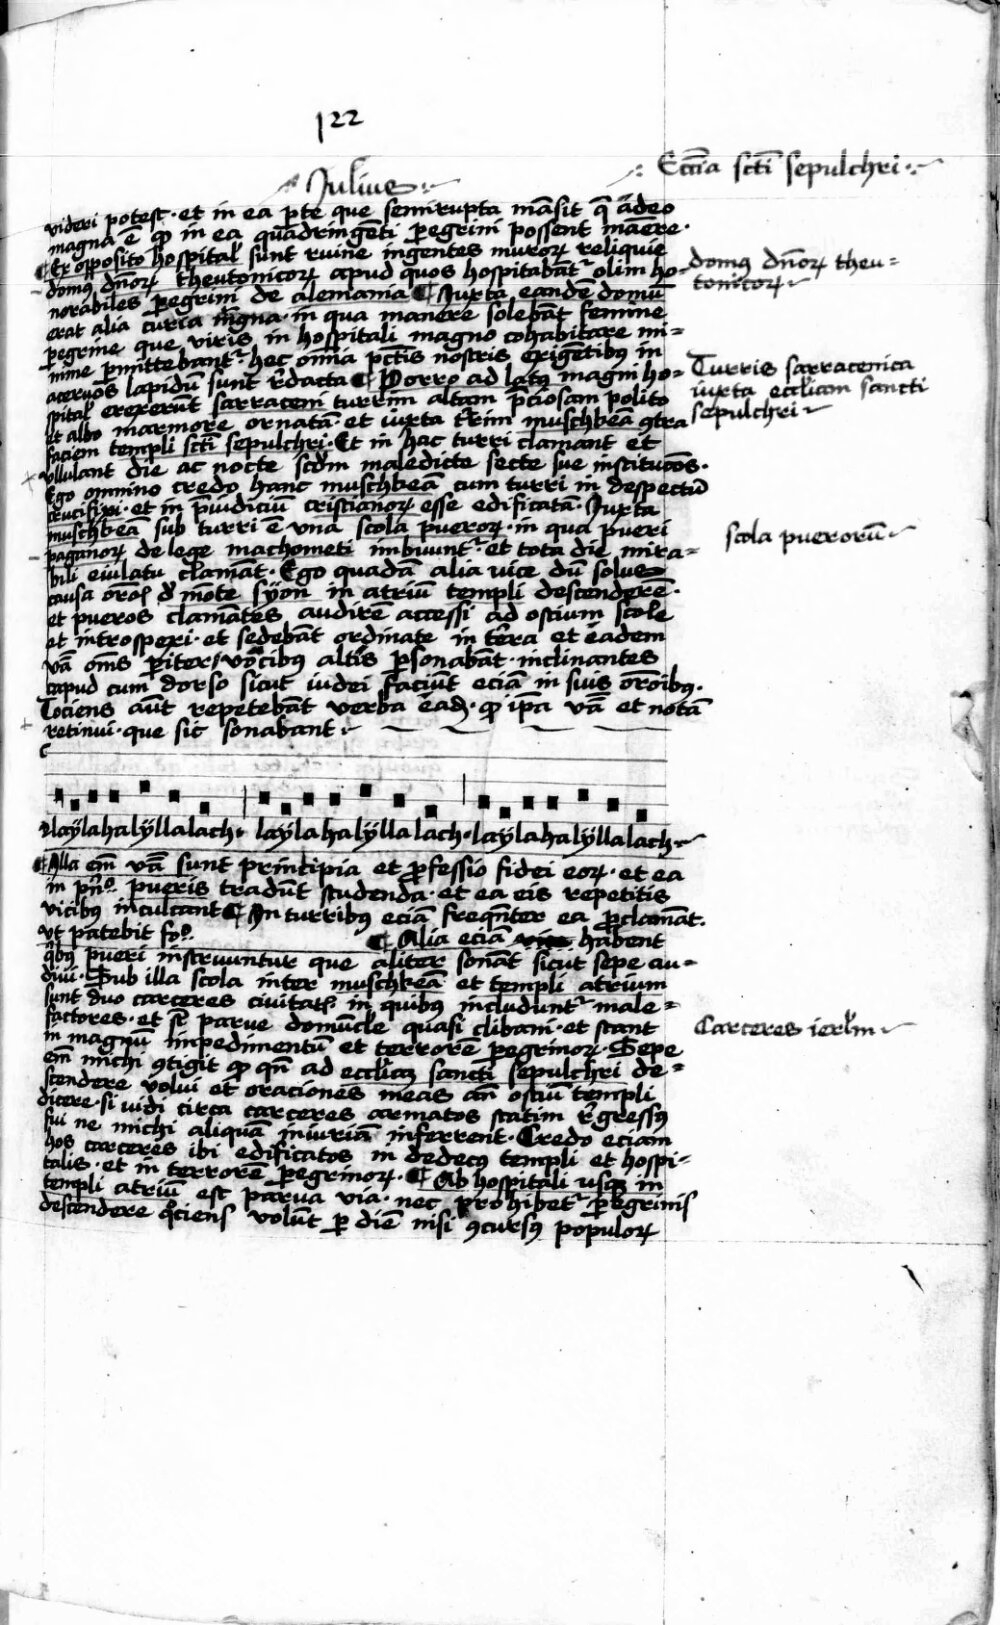 122
Julius
Eccīa scti sepulchri
videri potest · et in ea p̄te que semirupta māsit q̄ adeo
magna ē qꝫ in ea quadringēti peregrini possent maere ·
¶ Ex opposito hospital sunt ruine ingentes muroꝝ reliquie
domꝰ dn̄oꝝ theutonicoꝝ apud quos hospitabāt᷑ olim ho-
domꝰ dn̄oꝝ theu=
tonicoꝝ
norabiles peregrini de alemania ¶ Juxta eandē domū
erat alia curia magna · in qua manere solebāt femine
peregrine que viris in hospitali magno cohabitare mi=
nime p̄mittebant᷑ · hec om̄ia pctīs nostris exigētibꝰ in
aceruos lapidū sunt r̄dacta ¶ Porro ad latꝰ magni ho=
Turris sarracenica
iuxta eccliam sancti
sepulchri
spital erexerūt sarraceni turrim altam p̄ciosam polito
et albo marmore ornatā · et iuxta t᷑rim muschbeā ꝯtra
faciem templi scti sepulchri · Et in hac turri clamant et
vllulant die ac nocte scd̄m maledicte secte sue institucōs ·
Ego omnino credo hanc muschbeā cum turri in despectū
crucifixi · et in p̄iudiciū cristianoꝝ esse edificatā · Juxta
muschbeā sub turri ē vna scola pueroꝝ · in qua pueri
scola puerorū
paganoꝝ de lege machometi imbuunt᷑ · et tota die mira=
bili eiulatu clamāt · Ego quadā alia vice dū solus
causa orōꝭ d̄ mōte sÿon in atriū templi descenderē ·
et pueros clamātes audirē accessi ad ostium scole
et introspexi · et sedebāt ordinate in terra et eadem
v̄ba om̄s p̄iter vocibus altis p̄sonabāt · inclinantes
capud cum dorso sicut iudei faciūt eciā in suis orōibꝰ ·
Tociens aūt repetebāt verba eadꝫ · qꝫ ip̄a v̄ba et notā
retinui · que sic sonabant
laÿlahalÿllalach · laÿlahalÿllalach · laÿlahalÿllalach
¶ Illa em̄ v̄ba sunt principia et p̄fessio fidei eoꝝ · et ea
in pn̄o pueris tradūt studenda · et ea eis repetitis
vicibꝰ inculcant ¶ In turribꝰ eciā freqn̄ter ea p̄clamāt ·
vt patebit fo.
¶ Alia eciā habent
qͥbꝰ pueri instruuntur que aliter sonāt sicut sepe au=
diui · Sub illa scola inter muschkeā et templi atrium
sunt duo carceres ciuitatꝭ in quibus includunt᷑ male=
factores · et st̄ parue domūcle quasi clibani · et stant
Carceres ierlm̄
in magnū impedimentū et terrorē peregrinoꝝ · Sepe
em̄ michi ꝯtigit qꝫ qn̄ ad eccliaꝫ sancti sepulchri de=
scendere volui et oraciones meas an̄ ostiū templi
dicere · si vidi circa carceres armatos statim r̄gressꝰ
fui ne michi aliquā iniuriā inferrent · Credo eciam
hos carceres ibi edificatos in dedecꝰ templi et hospi-
talis · et in terrorē peregrinoꝝ · ¶ Ab hospitali usqꝫ in
templi atriū est parua via · nec prohibet᷑ peregrinis
descendere qͦciens volūt p̄ diē nisi ꝯcursꝰ populoꝝ